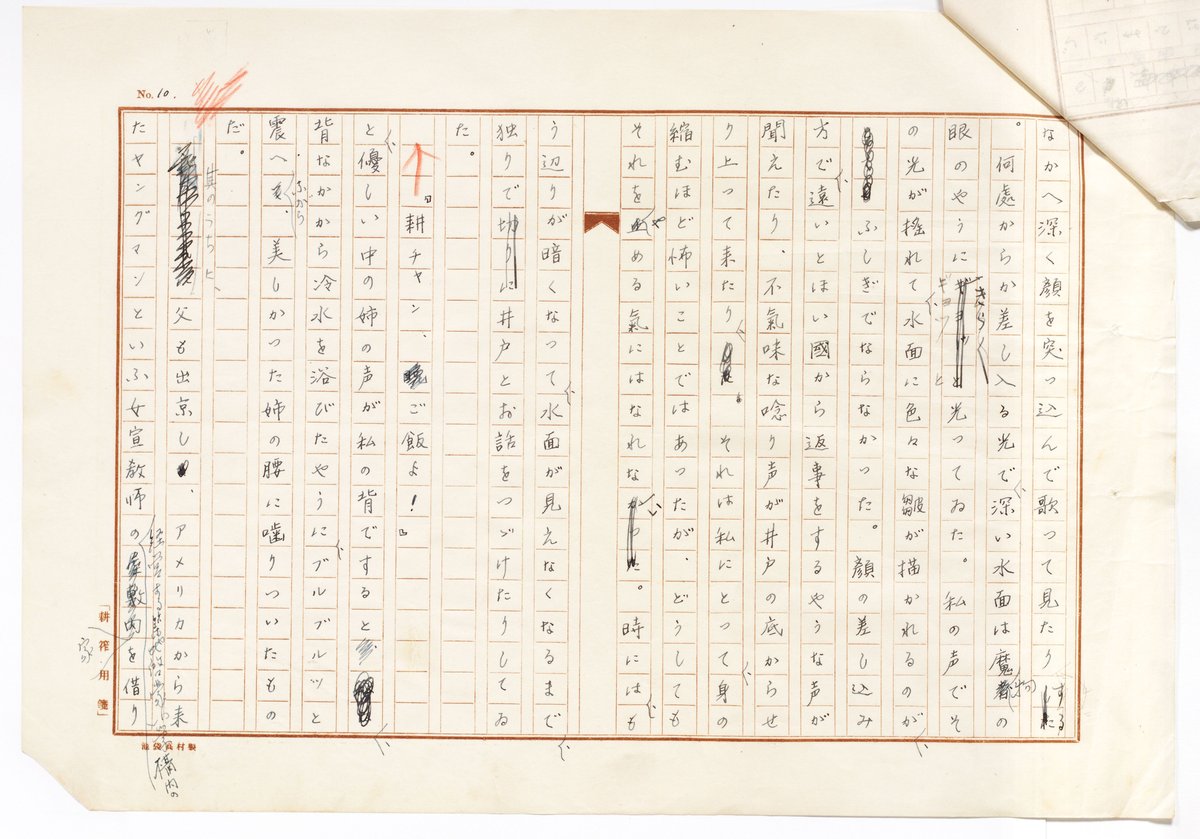 No. 10.
なかへ深く顔を突つ込んで歌つて見たりする
。何處からか差し入る光で、深い水面は魔物の
眼のやうにギヨツと光つてゐた。私の声でそ
の光が搖れて水面に色々な皺が描かれるのが、
ふしぎでならなかつた。顔の差し込み
方で、遠いとほい國から返事をするやうな声が
聞えたり、不氣味な唸り声が井戸の底からせ
り上つて来たり、それは私にとつて、身の
縮むほど怖いことではあつたが、どうしても
それをやめる氣にはなれない。時には、も
う辺りが暗くなつて、水面が見えなくなるまで、
独りで井戸とお話をつゞけたりしてゐ
た。
「耕チャン、ご飯よ！」
と、優しい中の姉の声が私の背ですると、
背なかから冷水を浴びたやうに、ブルルブルルッと
震へながら、美しかつた姉の腰に噛りついたもの
だ。
其のうちに、父も出京し、アメリカから来
たヤングマンといふ女宣教師の
構内の
を借り
「耕 筰 用 箋」
池袋萬村製